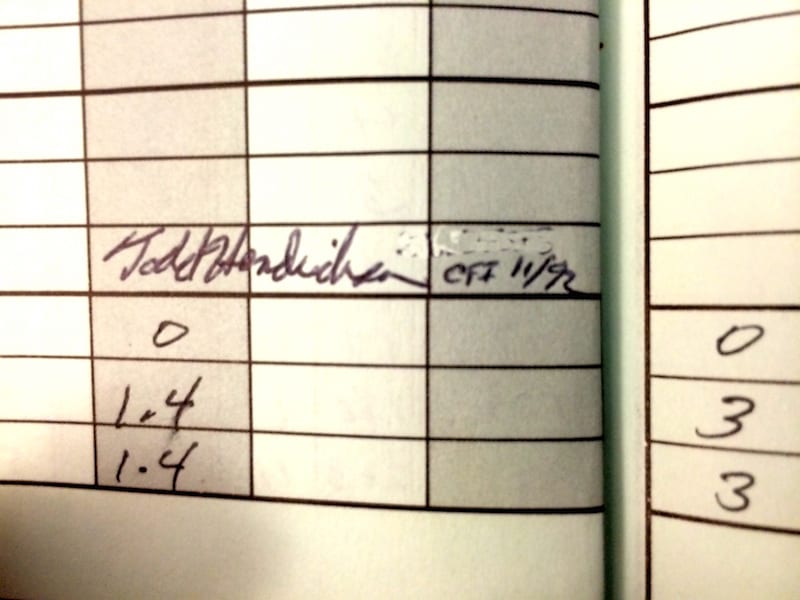 Todd Hendricksen CFI 11/92
0 0
1.4 3
1.4 3